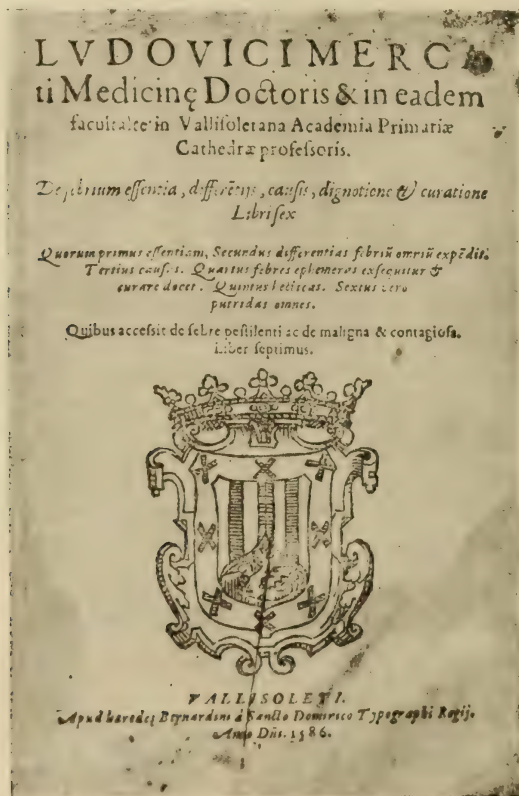 LVDOVICI MERC
ti Medicinę Doctoris & in eadem
facultate in Vallisoletana Academia Primariæ
Cathedræ professoris.
De febrium essentia, differētijs, causis, dignotione & curatione
Libri sex
Quorum primus essentiam, Secundus differentias febriū omniū expēdit.
Tertius causas. Quartus febres ephemeras exsequitur &
curare docet. Quintus hetiscas. Sextus vero
putridas omnes.
Quibus accessit de febre pestilenti ac de maligna & contagiosa.
Liber septimus.
VALLISOLETI.
Apud haredes Bernardini à Sancto Dominico Typographi Regij.
Anno Dñi. 1586.